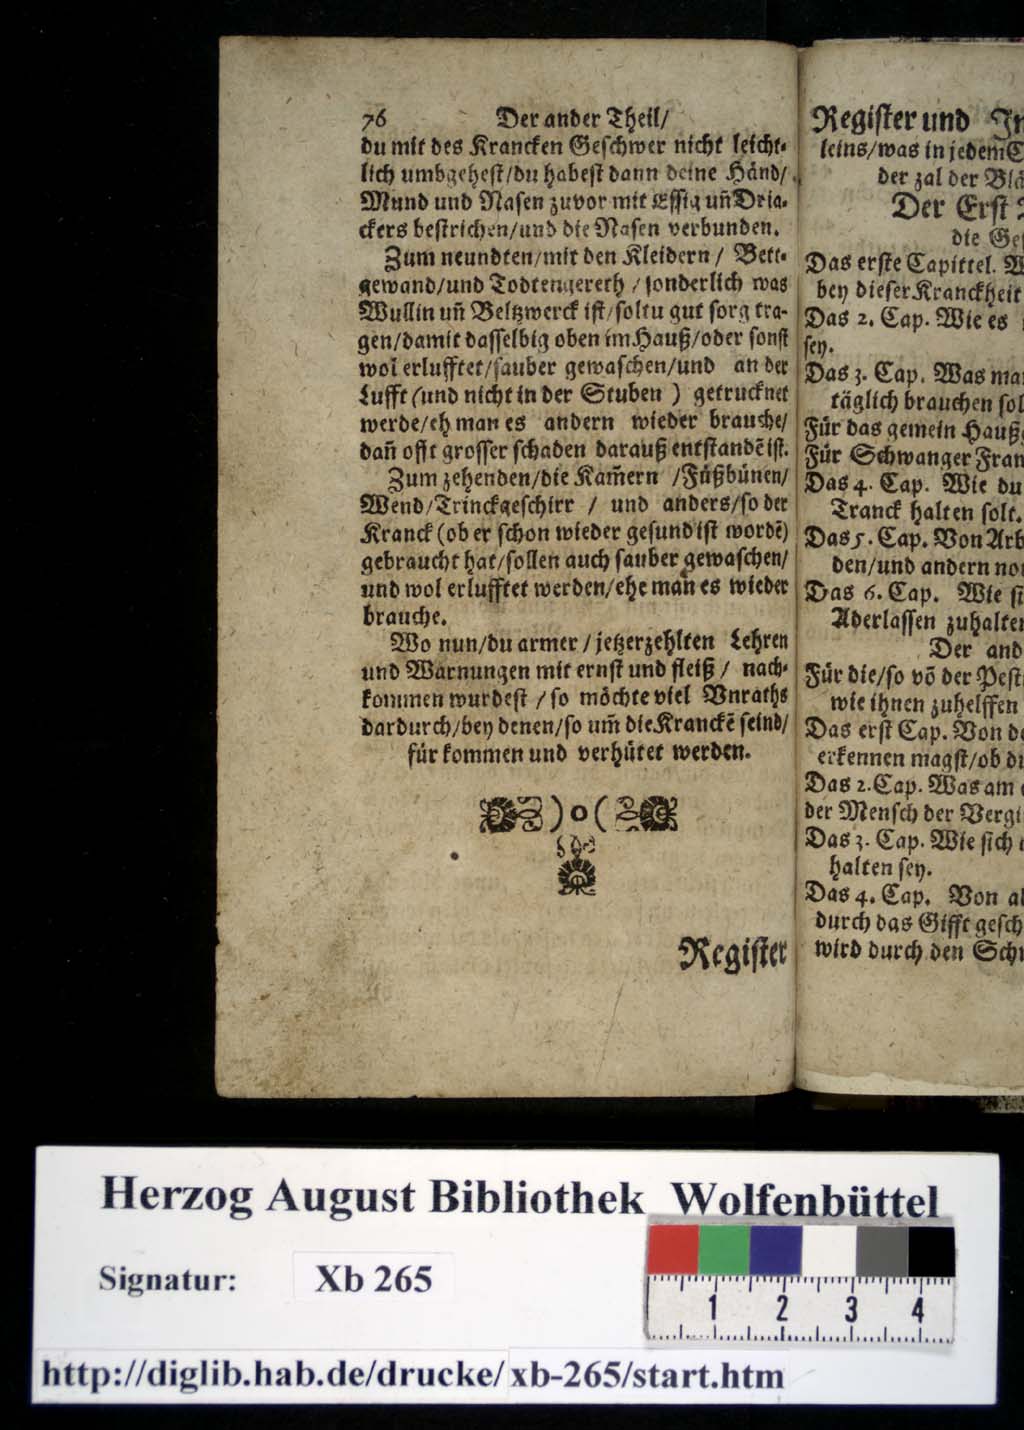 76 Der ander Theil/
du mit des Krancken Geschwer nicht leicht-
lich umbgehest/du habest dann deine Händ/
Mund und Nasen zuvor mit Essig uñ Dria-
ckers bestrichen/und die Nasen verbunden.
Zum neundten/mit den Kleidern / Bett-
gewand/und Todtengereth / sonderlich was
Wullin uñ Beltzwerck ist/soltu gut sorg tra-
gen/damit dasselbig oben im Hauß/oder sonst
wol erlufftet/sauber gewaschen/und an der
Lufft (und nicht in der Stuben ) getrucknet
werde/eh man es andern wieder brauche/
dañ offt grosser schaden darauß entstandẽ ist.
Zum zehenden/die Kam̃ern /Fůßbůnen/
Wend/Trinckgeschirr / und anders/so der
Kranck (ob er schon wieder gesund ist wordẽ)
gebraucht hat/sollen auch sauber gewaschen/
und wol erlufftet werden/ehe man es wieder
brauche.
Wo nun/du armer / jetzerzehlten Lehren
und Warnungen mit ernst und fleiß / nach-
kommen wurdest / so möchte viel Vnraths
dardurch/bey denen/so um̃ die Kranckẽ seind/
für kommen und verhütet werden.
) o (
Register
Register und In
leins/was in jedem C
der zal der Blä
Der Erst
die Ge
Das erste Capittel. W
bey dieser Kranckheit
Das 2. Cap. Wie es
sey.
Das 3. Cap. Was man
täglich brauchen sol
Für das gemein Hauß
Für Schwanger Fran
Das 4. Cap. Wie du
Tranck halten solt.
Das 5. Cap. Von Arb
den/und andern no
Das 6. Cap. Wie si
Aderlassen zuhalten
Der and
Für die/so võ der Pest
wie ihnen zuhelffen
Das erst Cap. Von de
erkennen magst/ob di
Das 2. Cap. Was am
der Mensch der Vergi
Das 3. Cap. Wie sich
halten sey.
Das 4. Cap. Von al
durch das Gifft gesch
wird durch den Schr
Herzog August Bibliothek Wolfenbüttel
Signatur: Xb 265
1 2 3 4
http://diglib.hab.de/drucke/xb-265/start.htm